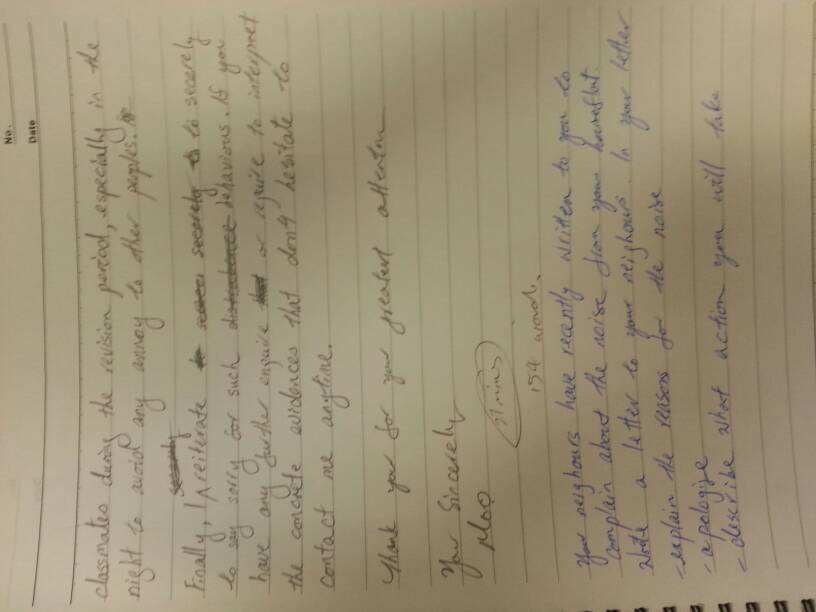 No.
Date
classmates during the revision period, especially in the
night to avoid any annoy to other peoples.
Finally, I reiterate to secerely
to say sorry for such behavious. If you
have any further enquire or require to interpret
the concrete evidences that don't hesitate to
contact me anytime.
Thank you for your greatest attention
Your Sincerely
Mao
154 words.
Your neighours have recently written to you to
complain about the noise from your house flat.
Write a letter to your neighours. In your letter
-explain the reasons for the noise
-apologise
-describe what action you will take